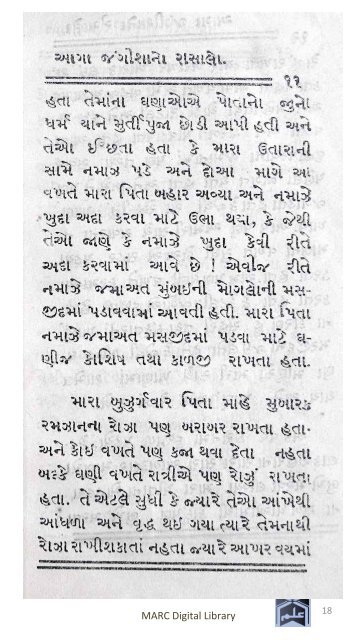 આગા જંગીશાનો રાસાલો.
૧૧
હતા તેમાંના ઘણાઓએ પોતાનો જુનો
ધર્મ યાને મુર્તી પુજા છોડી આપી હતી અને
તેઓ ઈચ્છતા હતા કે મારા ઉતારાની
સામે નમાઝ પડે અને દોઆ માગે આ
વખતે મારા પિતા બહાર અવ્યા અને નમાઝે
ખુદા અદા કરવા માટે ઉભા થયા, કે જેથી
તેઓ જાણે કે નમાઝે ખુદા કેવી રીતે
અદા કરવામાં આવે છે ! એવીજ રીતે
નમાઝે જમાઅત મુંબઈની મોગલોની મસ-
જીદમાં પડાવવામાં આવતી હતી. મારા પિતા
નમાઝે જમાઅત મસજીદમાં પડવા માટે ઘ-
ણીજ કોશિષ તથા કાળજી રાખતા હતા.
મારા બુઝુર્ગવાર પિતા માહે મુબારક
રમઝાનના રોઝા પણ બરાબર રાખતા હતા.
અને કોઇ વખતે પણ કજા થવા દેતા નહતા
બલ્કે ઘણી વખતે રાત્રીએ પણ રોઝું રાખતા
હતા. તે એટલે સુધી કે જ્યારે તેઓ આંખેથી
આંધળા અને વૃદ્ધ થઈ ગયા ત્યારે તેમનાથી
રોઝા રાખી શકાતાં નહતા જ્યારે આખર વયમાં
MARC Digital Library
18